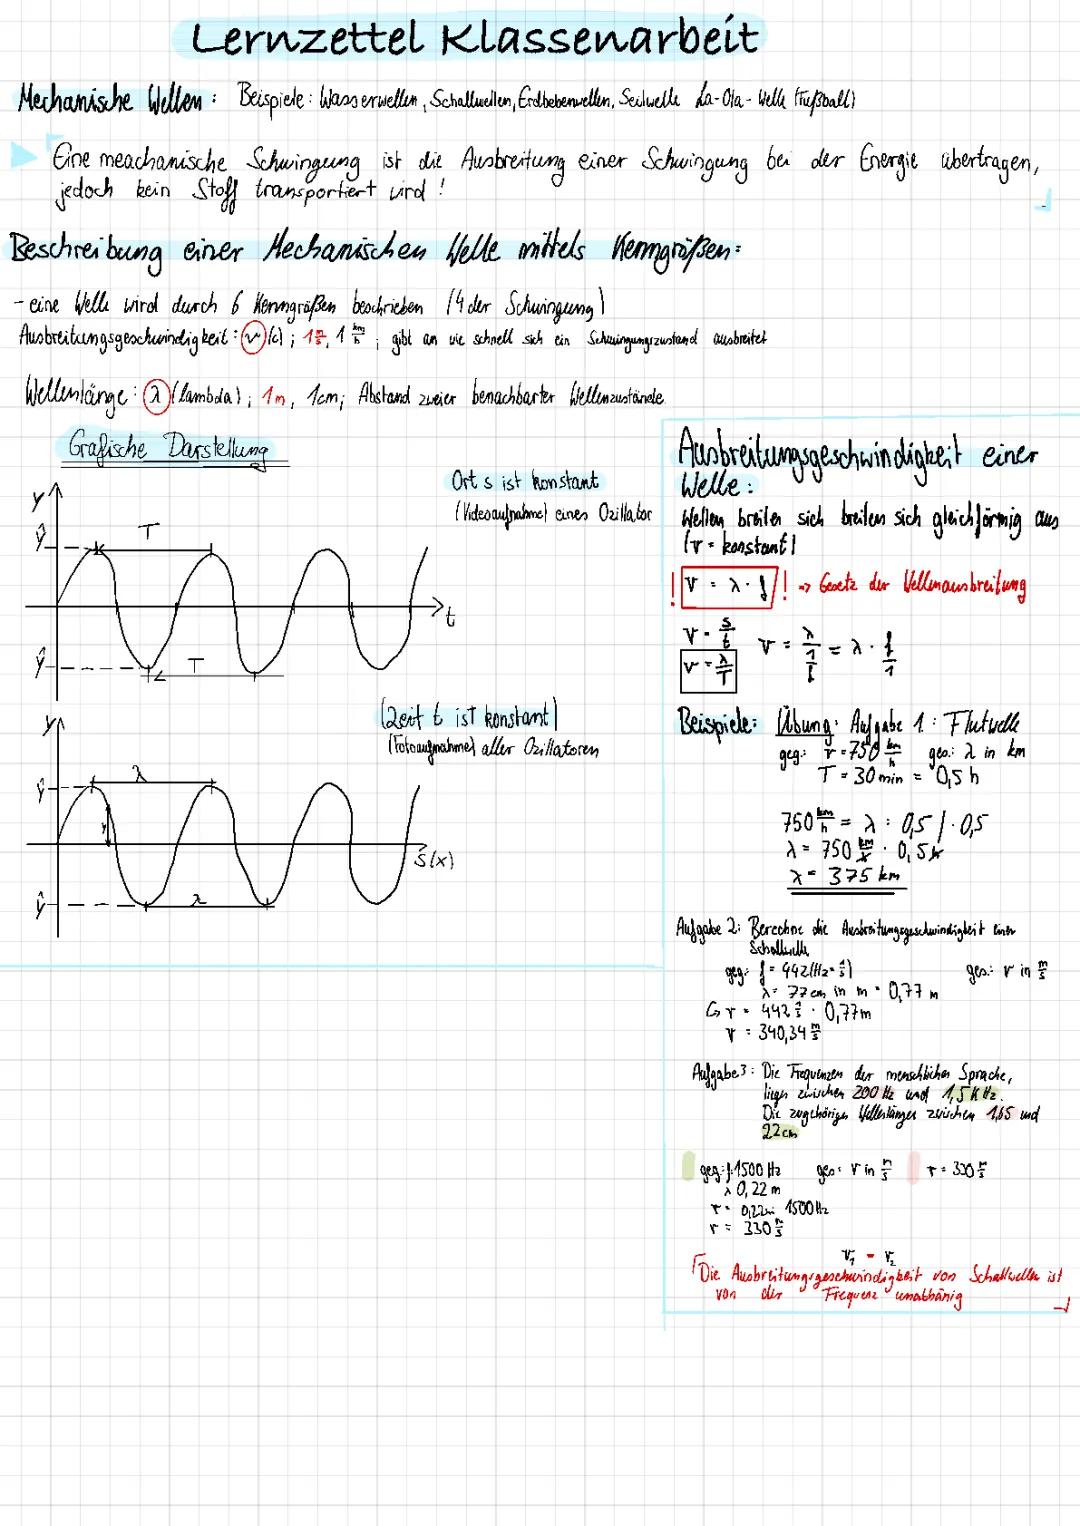 Lernzettel Klassenarbeit
Mechanische Wellen: Beispiele: Wasserwellen, Schallwellen, Erdbebenwellen, Seilwelle La-Ola-Welle (Fußball)
Eine meachanische Schwingung ist die Ausbreitung einer Schwingung bei der Energie übertragen,
jedoch kein Stoff transportiert wird!
Beschreibung einer Mechanischen Welle mittels Kenngrößen:
- eine Welle wird durch 6 Kenngrößen beschrieben (4 der Schwingung)
Ausbreitungsgeschwindigkeit: v (c); 1 m/s, 1 km/h; gibt an wie schnell sich ein Schwingungszustand ausbreitet
Wellenlänge: λ (lambda); 1m, 1cm; Abstand zweier benachbarter Wellenzustände
Grafische Darstellung
Ort s ist konstant
(Videoaufnahme) eines Ozillator
y
ŷ
T
t
ŷ
T
(Zeit t ist konstant)
(Fotoaufnahme) aller Ozillatoren
y
ŷ
λ
y
s(x)
ŷ
λ
Ausbreitungsgeschwindigkeit einer
Welle:
Wellen breiten sich breiten sich gleichförmig aus
(v = konstant)
! v = λ · f ! => Gesetz der Wellenausbreitung
v = s/t
v = λ/T
v = λ/(1/f) = λ · f/1
Beispiele: Übung: Aufgabe 1: Flutwelle
geg: v = 750 km/h ges.: λ in km
T = 30 min = 0,5 h
750 km/h = λ : 0,5 | · 0,5
λ = 750 km/h · 0,5h
λ = 375 km
Aufgabe 2: Berechne die Ausbreitungsgeschwindigkeit einer
Schallwelle
geg: f = 442 (Hz = 1/s) ges.: v in m/s
λ = 77 cm in m = 0,77 m
↳ v = 442 1/s · 0,77m
v = 340,34 m/s
Aufgabe 3: Die Frequenzen der menschlichen Sprache,
liegen zwischen 200 Hz und 1,5 KHz.
Die zugehörigen Wellenlängen zwischen 1,65 und
22cm
geg: f 1500 Hz ges: v in m/s v = 330 m/s
λ 0,22 m
v = 0,22m · 1500Hz
v = 330 m/s
v₁ = v₂
Die Ausbreitungsgeschwindigkeit von Schallwellen ist
von der Frequenz unabhänig